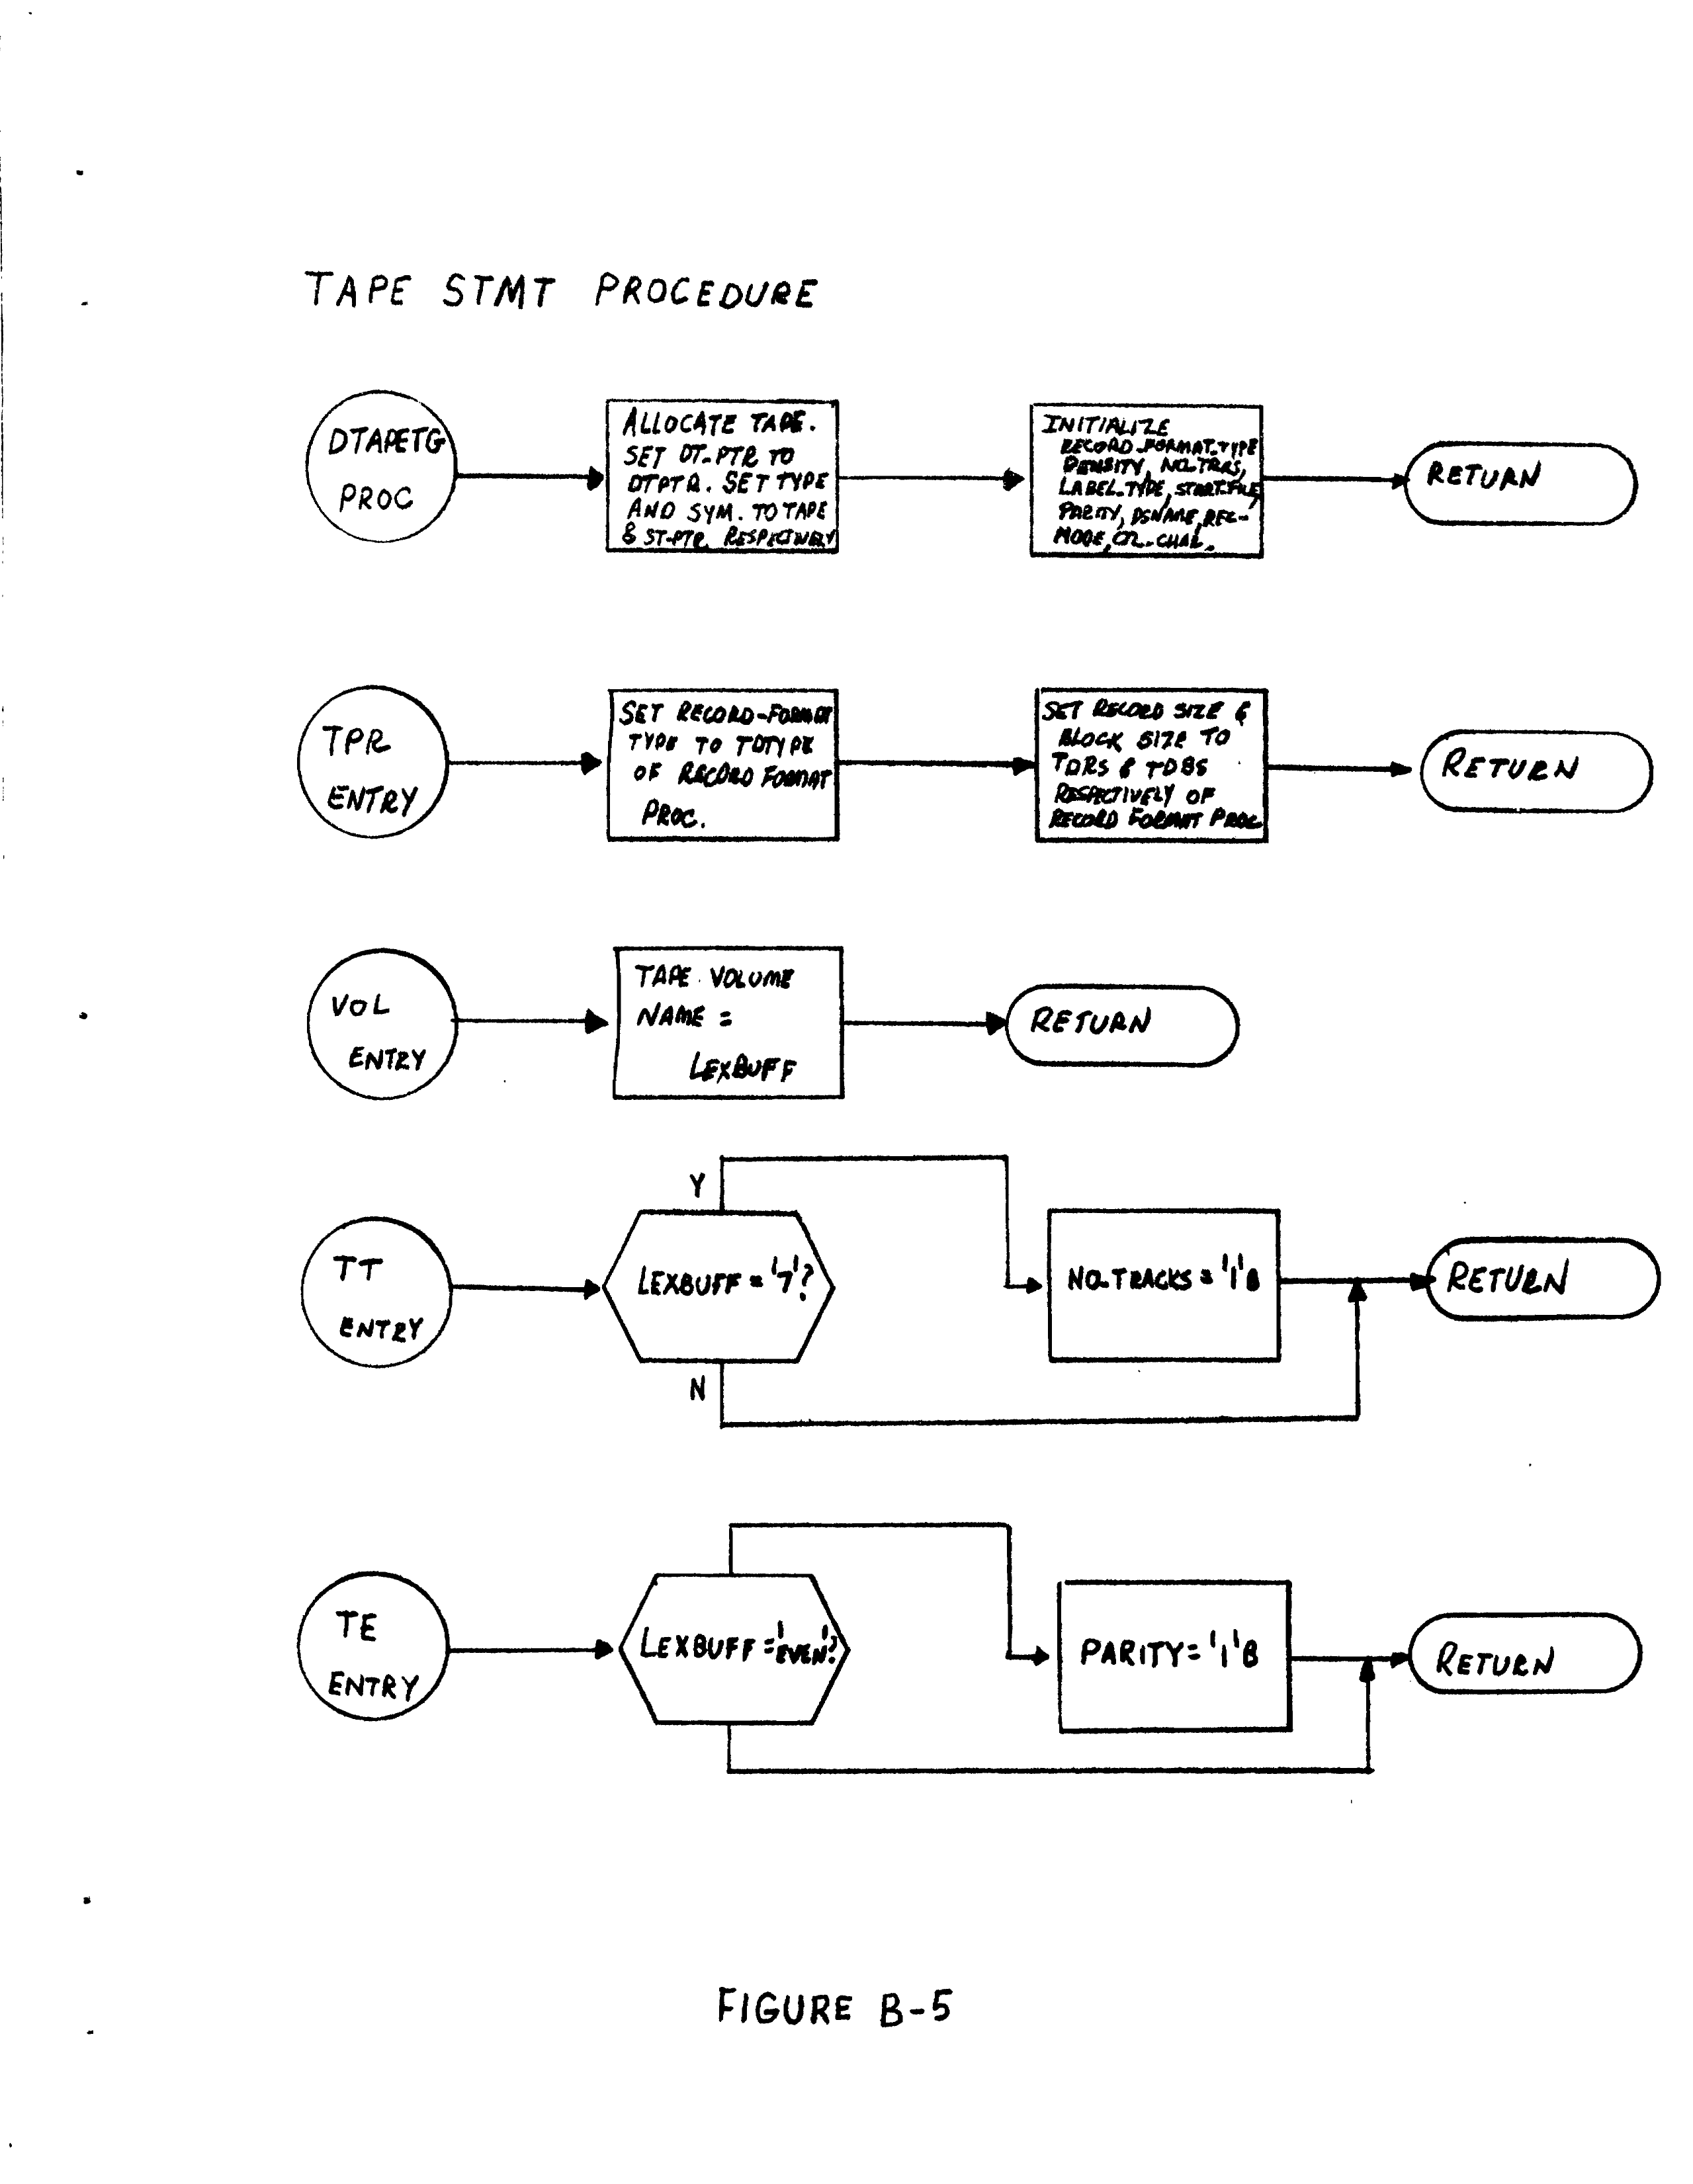 TAPE STMT PROCEDURE
DTAPETG
PROC
ALLOCATE TAPE.
SET DT_PTR TO
DTPTR. SET TYPE
AND SYM. TO TAPE
& ST_PTR RESPECTIVELY
INITIALIZE
RECORD_FORMAT_TYPE
DENSITY, NO_TRKS,
LABEL_TYPE, START_FILE,
PARITY, DSNAME, REC-
MODE,
RETURN
TPR
ENTRY
SET RECORD-FORMAT
TYPE TO TDTYPE
OF RECORD FORMAT
PROC.
SET RECORD SIZE &
BLOCK SIZE TO
TDRS & TDBS
RESPECTIVELY OF
RECORD FORMAT PROC
RETURN
VOL
ENTRY
TAPE VOLUME
NAME =
LEXBUFF
RETURN
Y
TT
ENTRY
LEXBUFF = '7'?
NO_TRACKS = '1'B
RETURN
N
TE
ENTRY
LEXBUFF = 'EVEN'?
PARITY = '1'B
RETURN
FIGURE B-5